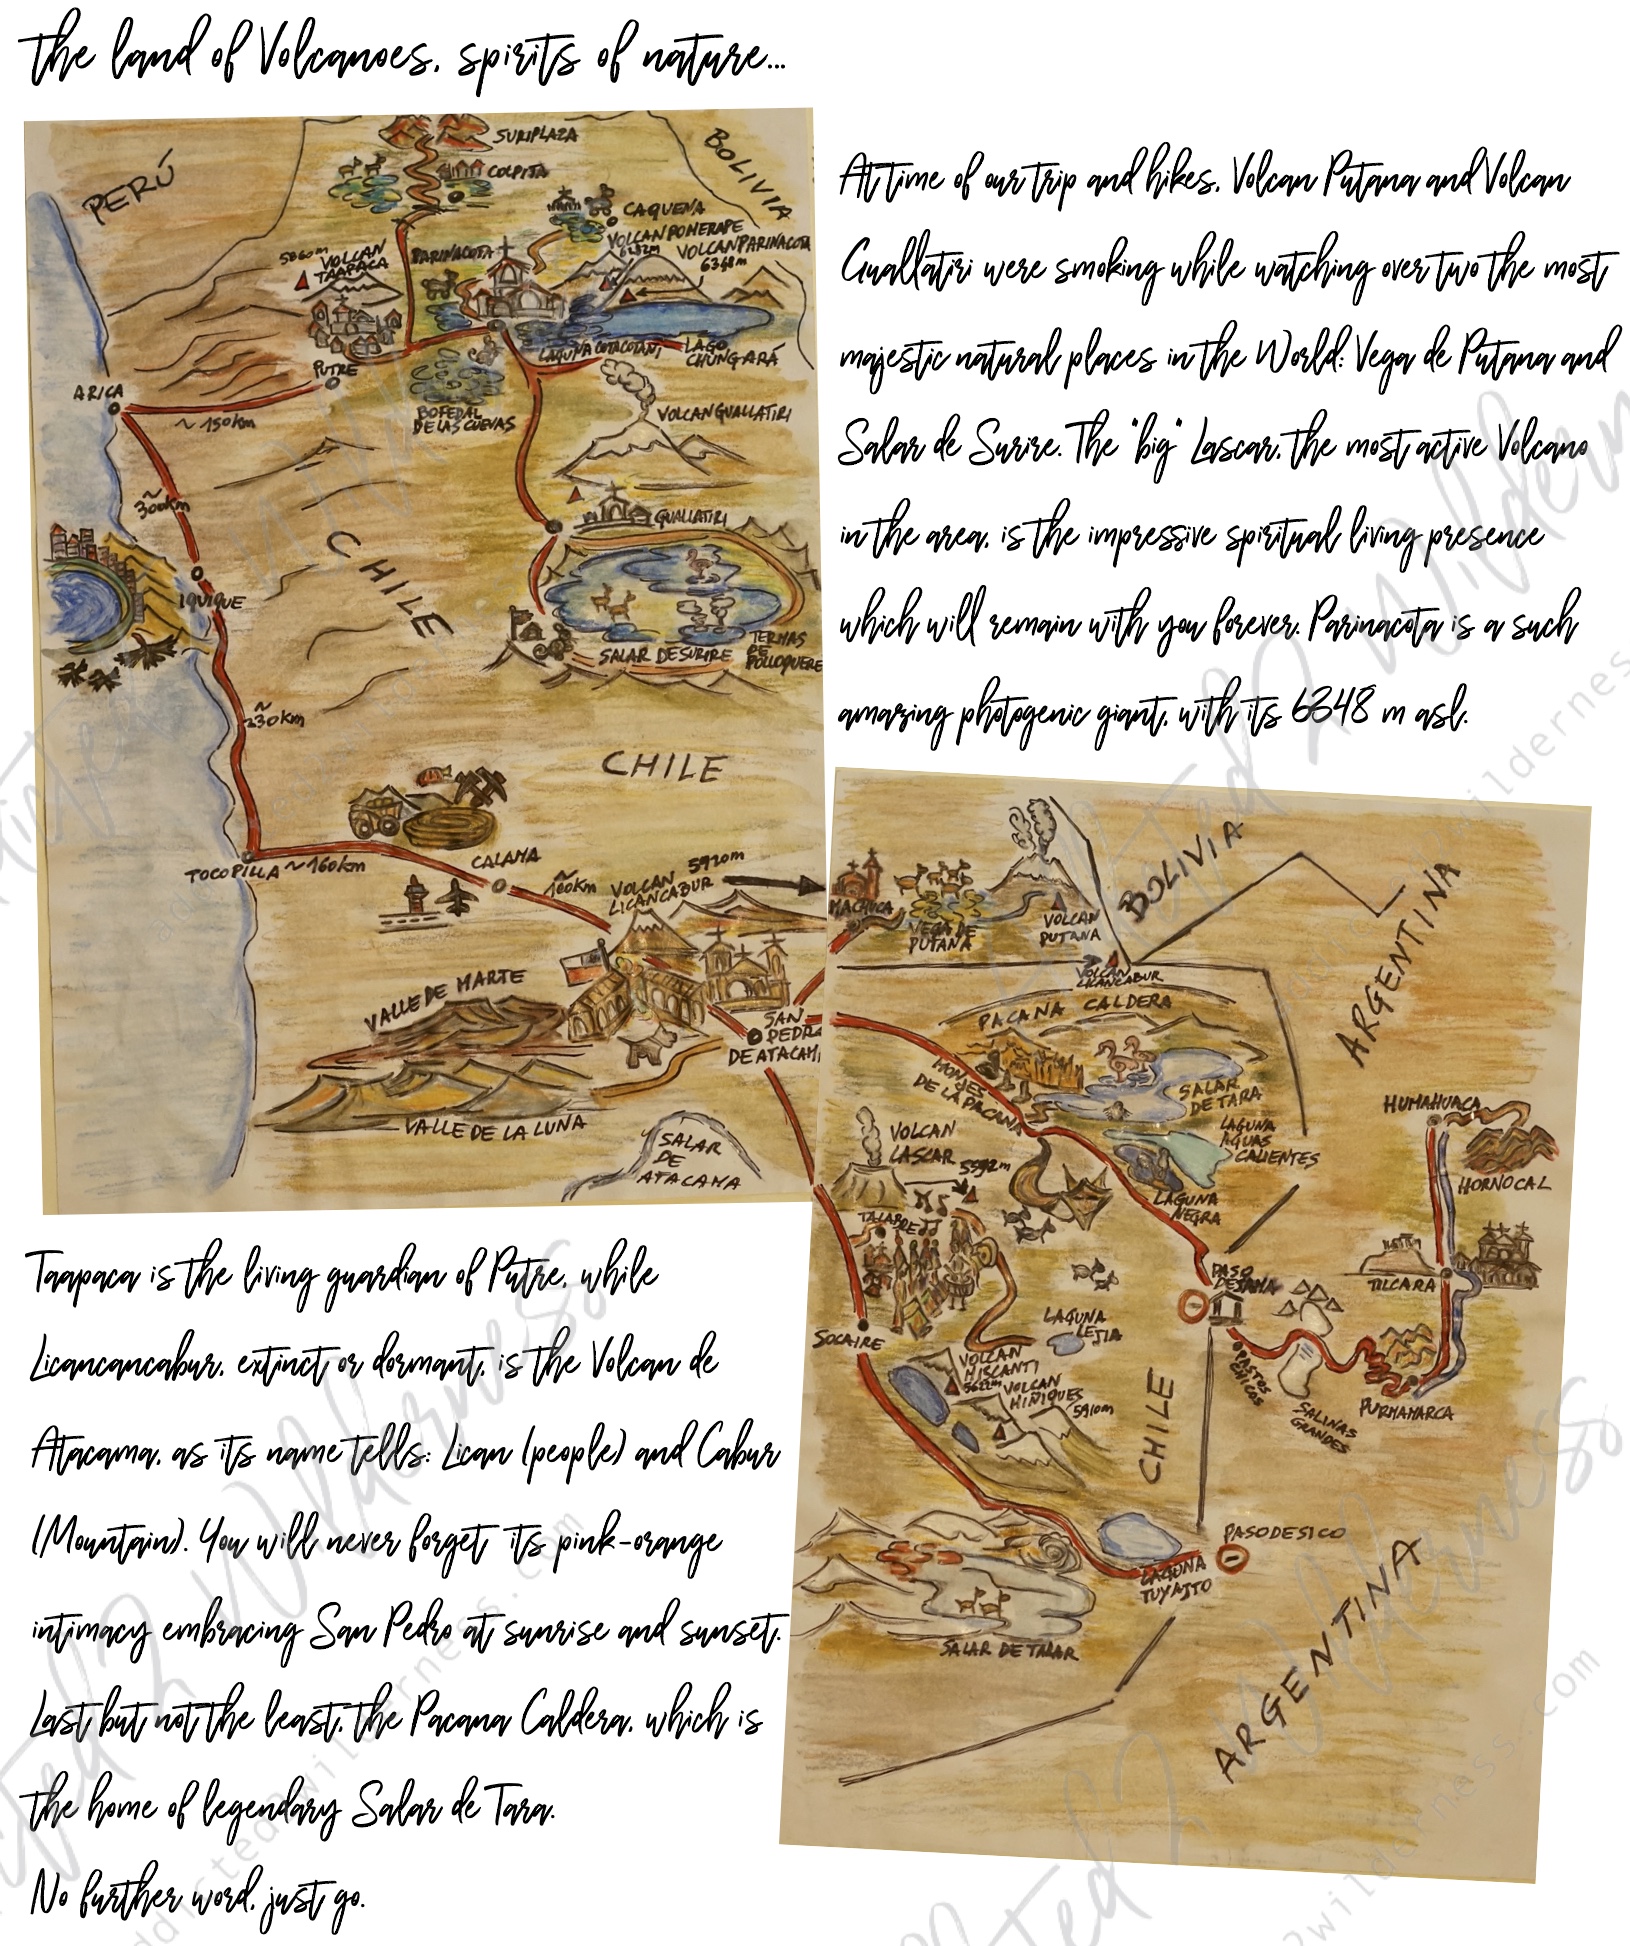 the land of Volcanoes, spirits of nature...
PERÚ
BOLIVIA
SURIPLAZA
COLPITA
CAQUENA
VOLCAN POMERAPE
6282m
VOLCAN PARINACOTA
6348m
PARINACOTA
VOLCAN
TAAPACA
PUTRE
LAGUNA COTACOTANI
LAGO
CHUNGARÁ
ARICA
~150km
BOFEDAL
DE LAS CUEVAS
VOLCAN GUALLATIRI
~
300km
GUALLATIRI
CHILE
IQUIQUE
SALAR DE SURIRE
TERMAS
DE
POLLOQUERE
~
230km
CHILE
TOCOPILLA ~160km
CALAMA
~
100km
VOLCAN
LICANCABUR
5920m
VALLE DE MARTE
SAN
PEDRO
DE ATACAM
VALLE DE LA LUNA
SALAR
DE
ATACAMA
At time of our trip and hikes, Volcan Putana and Volcan
Guallatiri were smoking while watching over two the most
majestic natural places in the World: Vega de Putana and
Salar de Surire. The "big" Lascar, the most active Volcano
in the area, is the impressive spiritual living presence
which will remain with you forever. Parinacota is a such
amazing photogenic giant, with its 6348 m asl.
MACHUCA
VEGA DE
PUTANA
VOLCAN
PUTANA
BOLIVIA
ARGENTINA
VOLCAN
LICANCABUR
PACANA CALDERA
MONJES
DE LA PACANA
SALAR
DE TARA
LAGUNA
AGUAS
CALIENTES
LAGUNA
NEGRA
HUMAHUACA
HORNOCAL
VOLCAN
LASCAR
5592m
TALABRE
TILCARA
PASO
DE JAMA
SOCAIRE
LAGUNA
LEJIA
VOLCAN
MISCANTI
5622m
VOLCAN
MIÑIQUES
5910m
CHILE
SALINAS
GRANDES
PURMAMARCA
PASO DE SICO
LAGUNA
TUYAJTO
SALAR DE TALAR
ARGENTINA
Taapaca is the living guardian of Putre, while
Licancancabur, extinct or dormant, is the Volcan de
Atacama, as its name tells: Lican (people) and Cabur
(Mountain). You will never forget its pink-orange
intimacy embracing San Pedro at sunrise and sunset.
Last but not the least, the Pacana Caldera, which is
the home of legendary Salar de Tara.
No further word, just go.